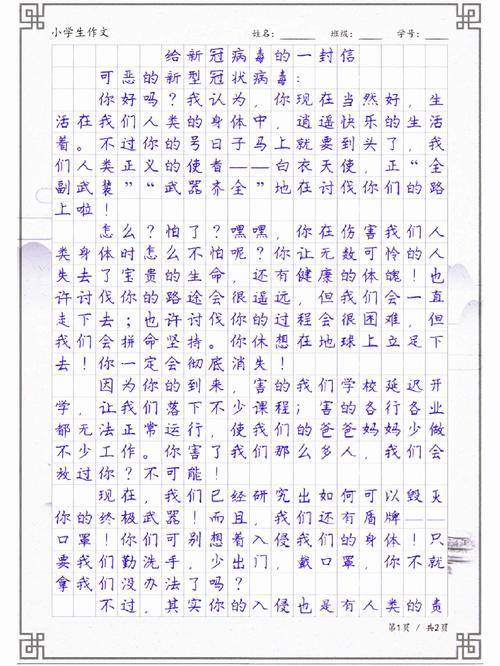 小学生作文 姓名： 班级： 学号：
给新冠病毒的一封信
可恶的新型冠状病毒：
你好吗？我认为，你现在当然好，生
活在我们人类的身体中，逍遥快乐的生活
着。不过你的号日子马上就要到头了，我
们人类正义的使者——白衣天使，正“全
副武装”“武器齐全”地在讨伐你们的路
上啦！
怎么？怕了？嘿嘿，你在伤害我们人
类身体时怎么不怕呢？你让无数可怜的人
失去了宝贵的生命，还有健康的体魄！也
许讨伐你的路途会很遥远，但我们会一直
走下去；也许讨伐你的过程会很困难，但
我们会拼命坚持。你休想在地球上立足下
去！你一定会彻底消失！
因为你的到来，害的我们学校延迟开
学，让我们落下不少课程；害的各行各业
都无法正常运行，使我们的爸爸妈妈少做
不少工作。你害了我们那么多人，我们会
放过你？不可能！
现在，我们已经研究出如何可以毁灭
你的终极武器！而且，我们还有盾牌——
口罩！你们可别想着入侵我们的身体！只
要我们勤洗手，少出门，戴口罩，你不就
拿我们没办法了吗？
不过，其实你的入侵也是有人类的责
第1页 / 共2页